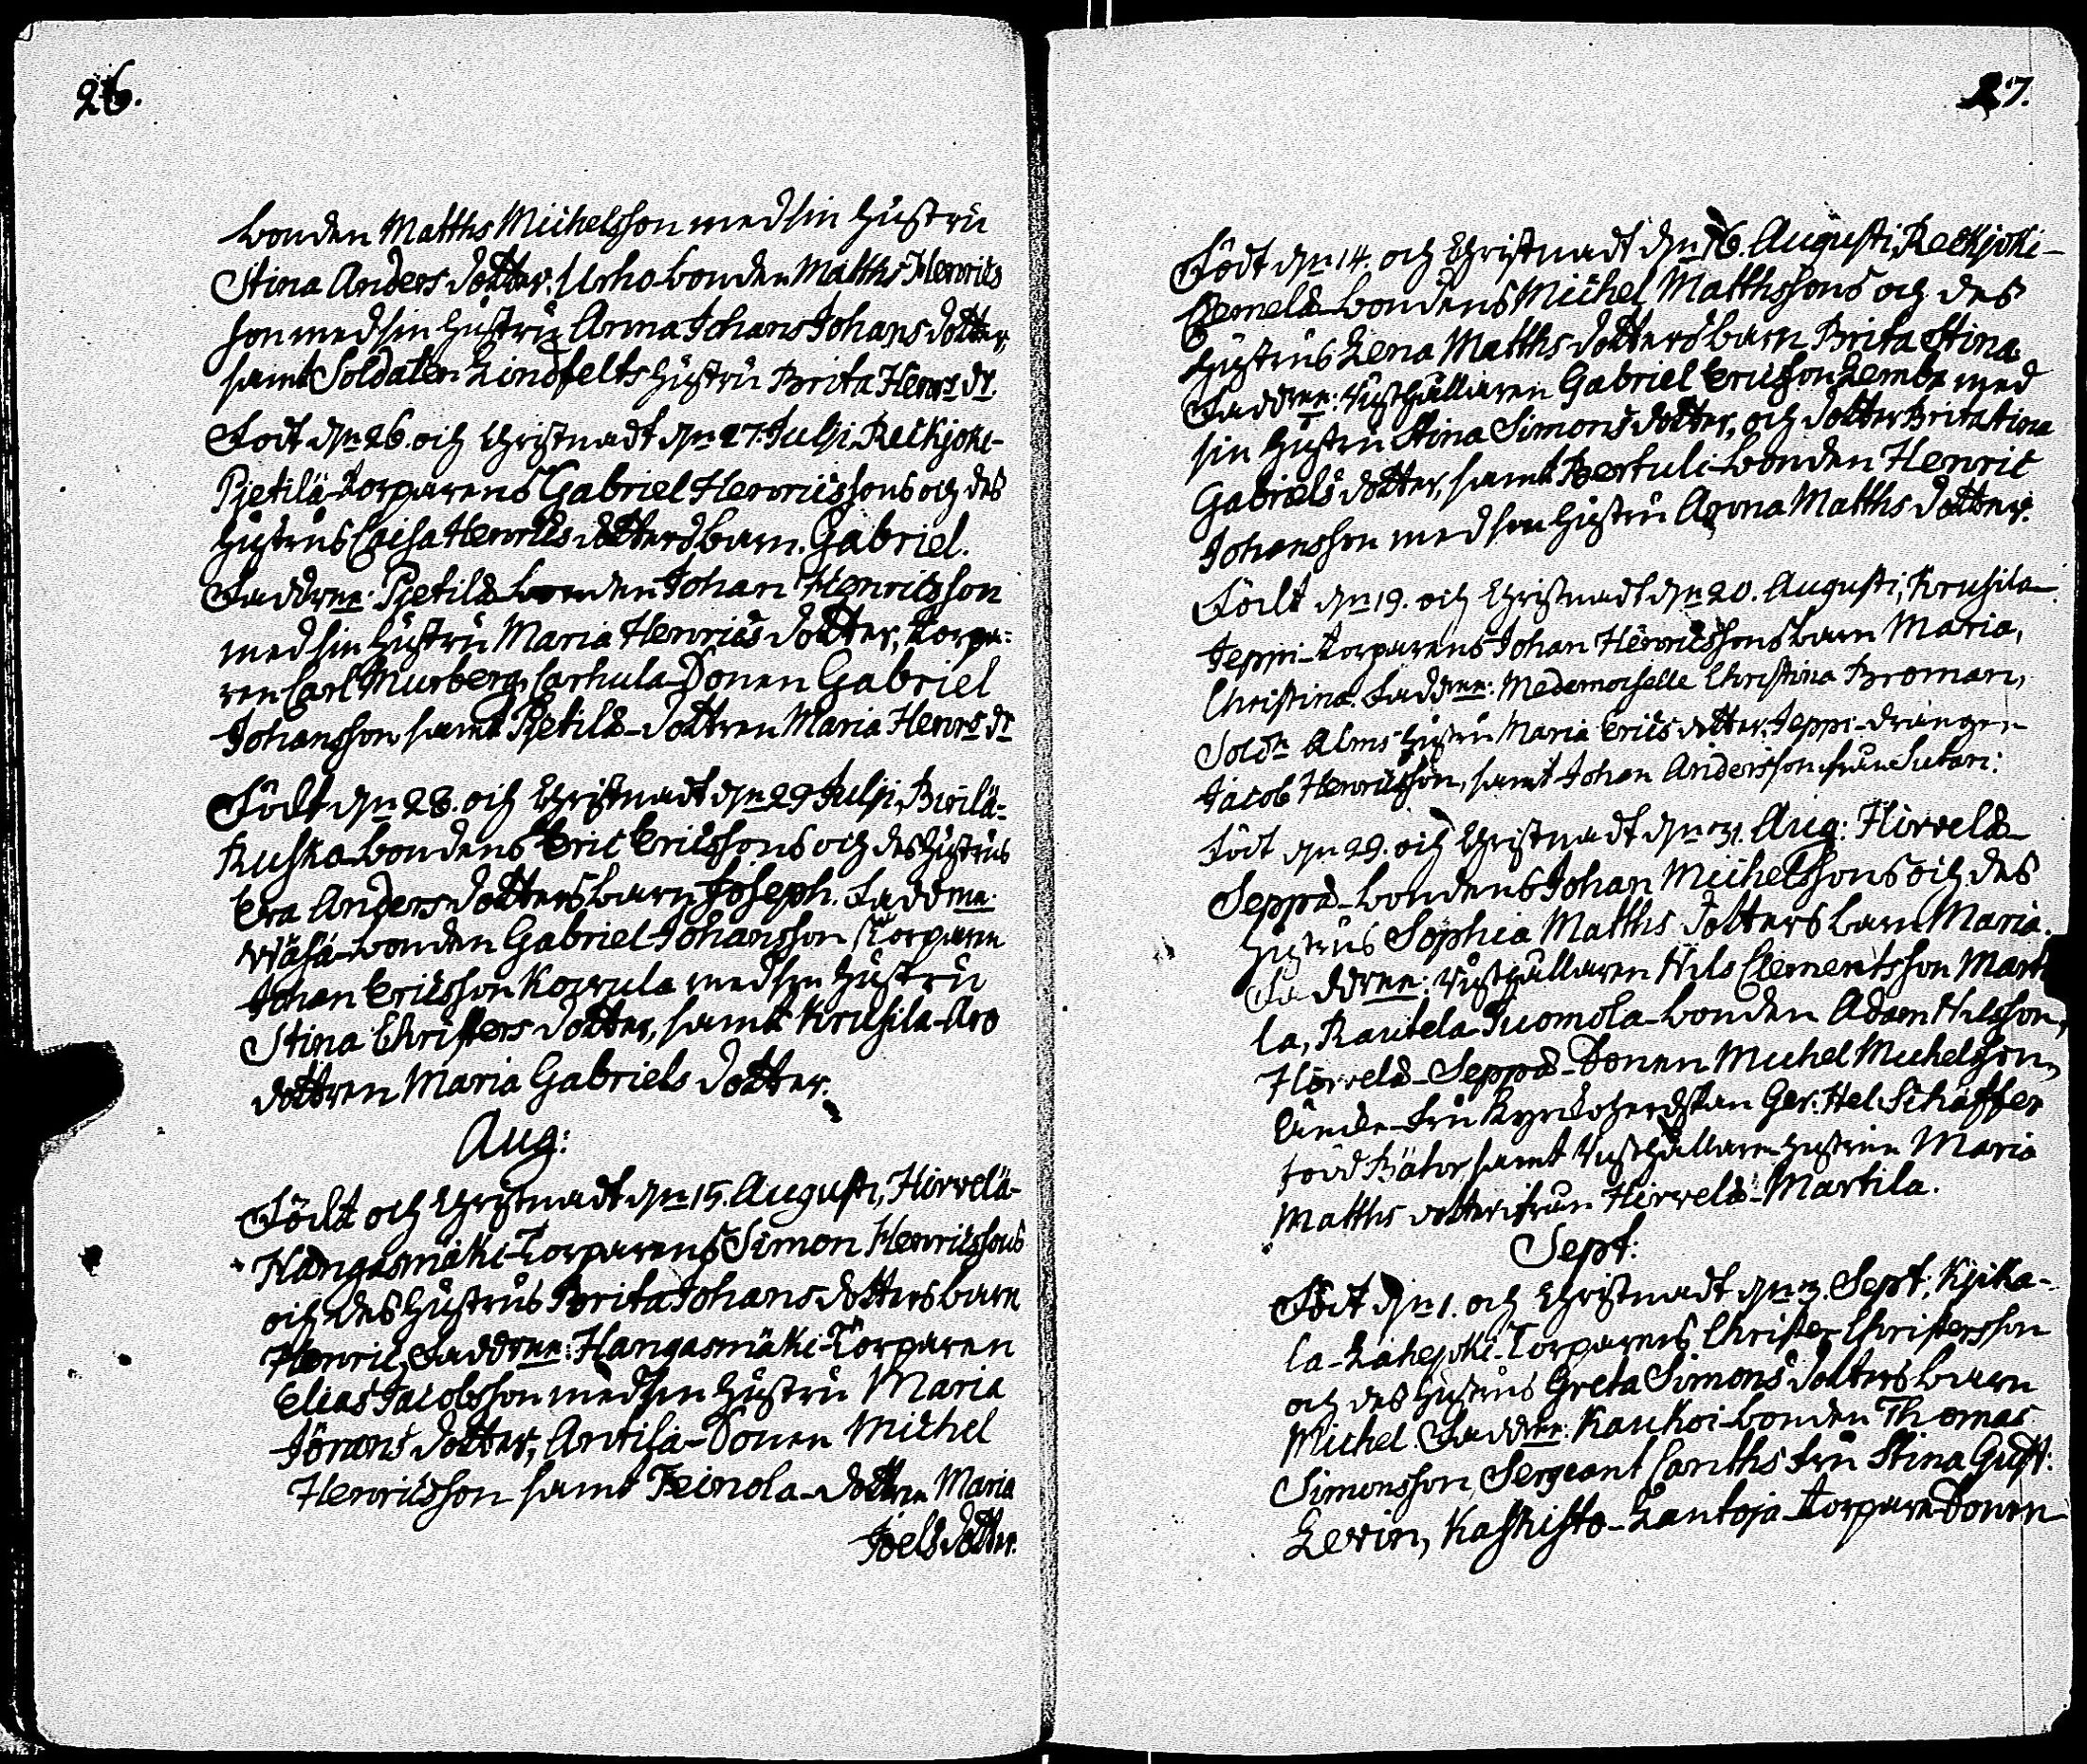 26.
bonden Matths Michelsson med sin hustru
Stina Anders dotter. Urho-bonden Matths Henrics
son med sin hustru Anna Johans Johans dotter,
samt Soldaten Lindfelts hustru Brita Henrs dr.
Född den 26. och Christnadt den 27. Julji, Reckjoki-
Pjetilä-torparens Gabriel Henricssons och des
hustrus Caisa Henrics dotters barn. Gabriel.
Faddrne: Pjetilä-bonden Johan Henricsson
med sin hustru Maria Henrics dotter, torpa-
ren Carl Murberg, Carhula-Sonen Gabriel
Johansson, samt Pjetilä-dottren Maria Henrs dr
Född den 28. och Christnadt den 29 Julji,
Ruska-bondens Eric Ericssons och des hustrus
Eva Anders dotters barn Joseph. Faddrne:
Wähä-bonden Gabriel Johansson, torparen
Johan Ericsson Korrula med sin hustru
Stina Christers dotter, samt Krusila-Aro
dottren Maria Gabriels dotter.
Aug:
Född och Christnadt den 15. Augusti, Hirvelä-
Hangasmäki-Torparens Simon Henricssons
och des hustrus Brita Johans dotters barn
Henric, Faddrne: Hangasmäki-Torparen
Elias Jacobsson med sin hustru Maria
Jörans dotter, Antila-Sonen Michel
Henricsson samt Heinola-dottren Maria
Joels dotter.
27.
Född den 14. och Christnadt den 16. Augusti, Reckjoki-
bondens Michel Matthssons och des
hustrus Lena Matths dotters barn Brita Stina
Faddrne: Rusthållaren Gabriel Ericsson Lembx med
sin hustru Stina Simons dotter, och dotter Brita Stina
Gabriels dotter, samt Pertuli-bonden Henric
Johansson med sin hustru Anna Matths dotter.
Född den 19. och Christnadt den 20. Augusti, Krusila-
Jeppi-torparens Johan Henricssons barn Maria,
Christina. Faddrne: Mademoiselle Christina Broman,
Soldn Alms hustru Maria Erics dotter, Jeppi-drängen
Jacob Henricsson, samt Johan Andersson från Sutari:
Född den 29. och Christnadt den 31. Aug: Hirvelä-
Seppä-bondens Johan Michelssons och des
hustrus Sophia Matths dotters barn Maria.
Faddrne: Rusthållaren Nils Clementsson Marti
la, Rautela-Tuomola-bonden Adam Nilsson,
Hirvelä-Seppä-Sonen Michel Michelsson,
Schäffer
född samt Rusthållare hustrun Maria
Matths dotter ifrån Hirvelä-Martila.
Sept:
Född den 1. och Christnadt den 3. Sept: Kjika-
la-Lähejoki-Torparens Christer Christersson
och des hustrus Greta Simons dotters barn
Michel. Faddrne: Kaukoi-bonden Thomas
Simonsson, Sergeant Canths fru Stina Gust:
Levin, Kaskisto-Lantoja-torpare-Sonen